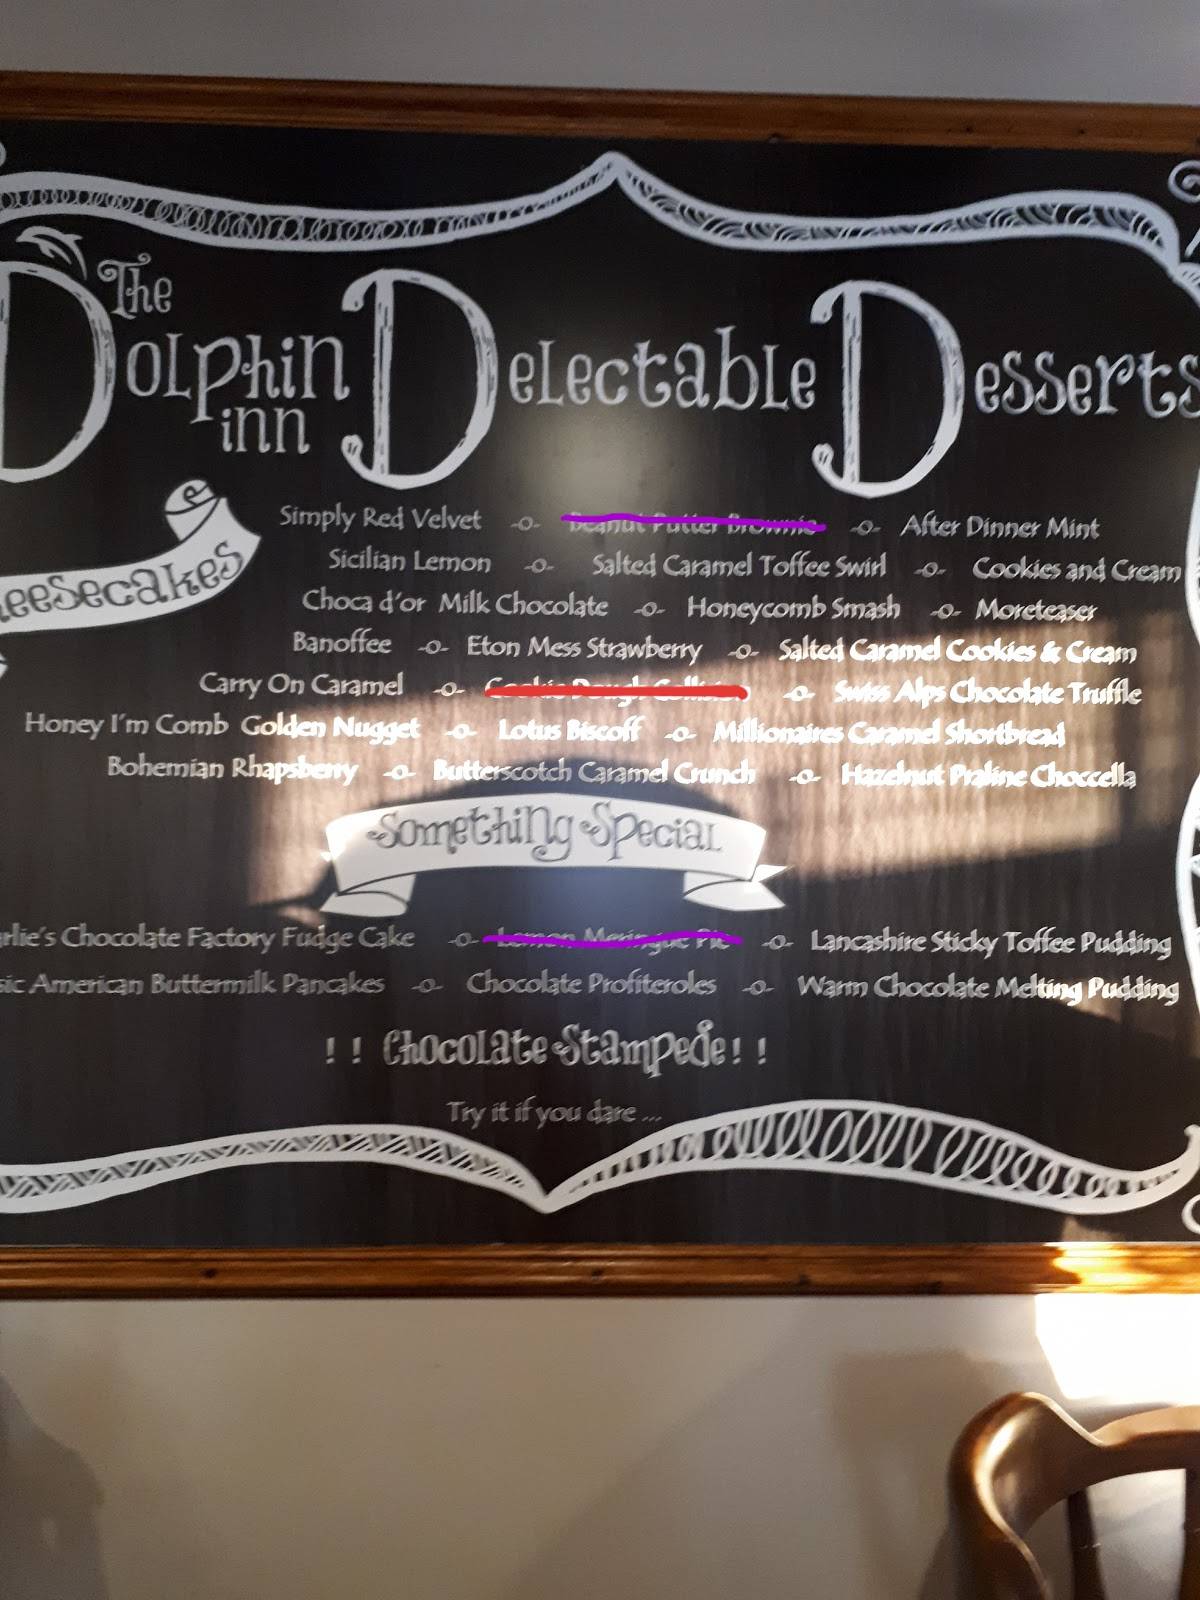 The Dolphin inn Delectable Desserts
Simply Red Velvet -o- Peanut Butter Brownie -o- After Dinner Mint
Cheesecakes
Sicilian Lemon -o- Salted Caramel Toffee Swirl -o- Cookies and Cream
Choca d'or Milk Chocolate -o- Honeycomb Smash -o- Moreteaser
Banoffee -o- Eton Mess Strawberry -o- Salted Caramel Cookies & Cream
Carry On Caramel -o- Cookie Dough -o- Swiss Alps Chocolate Truffle
Honey I'm Comb Golden Nugget -o- Lotus Biscoff -o- Millionaires Caramel Shortbread
Bohemian Rhapsberry -o- Butterscotch Caramel Crunch -o- Hazelnut Praline Choccella
Something Special
rlie's Chocolate Factory Fudge Cake -o- Lemon Meringue Pie -o- Lancashire Sticky Toffee Pudding
sic American Buttermilk Pancakes -o- Chocolate Profiteroles -o- Warm Chocolate Melting Pudding
!! Chocolate Stampede!!
Try it if you dare ...